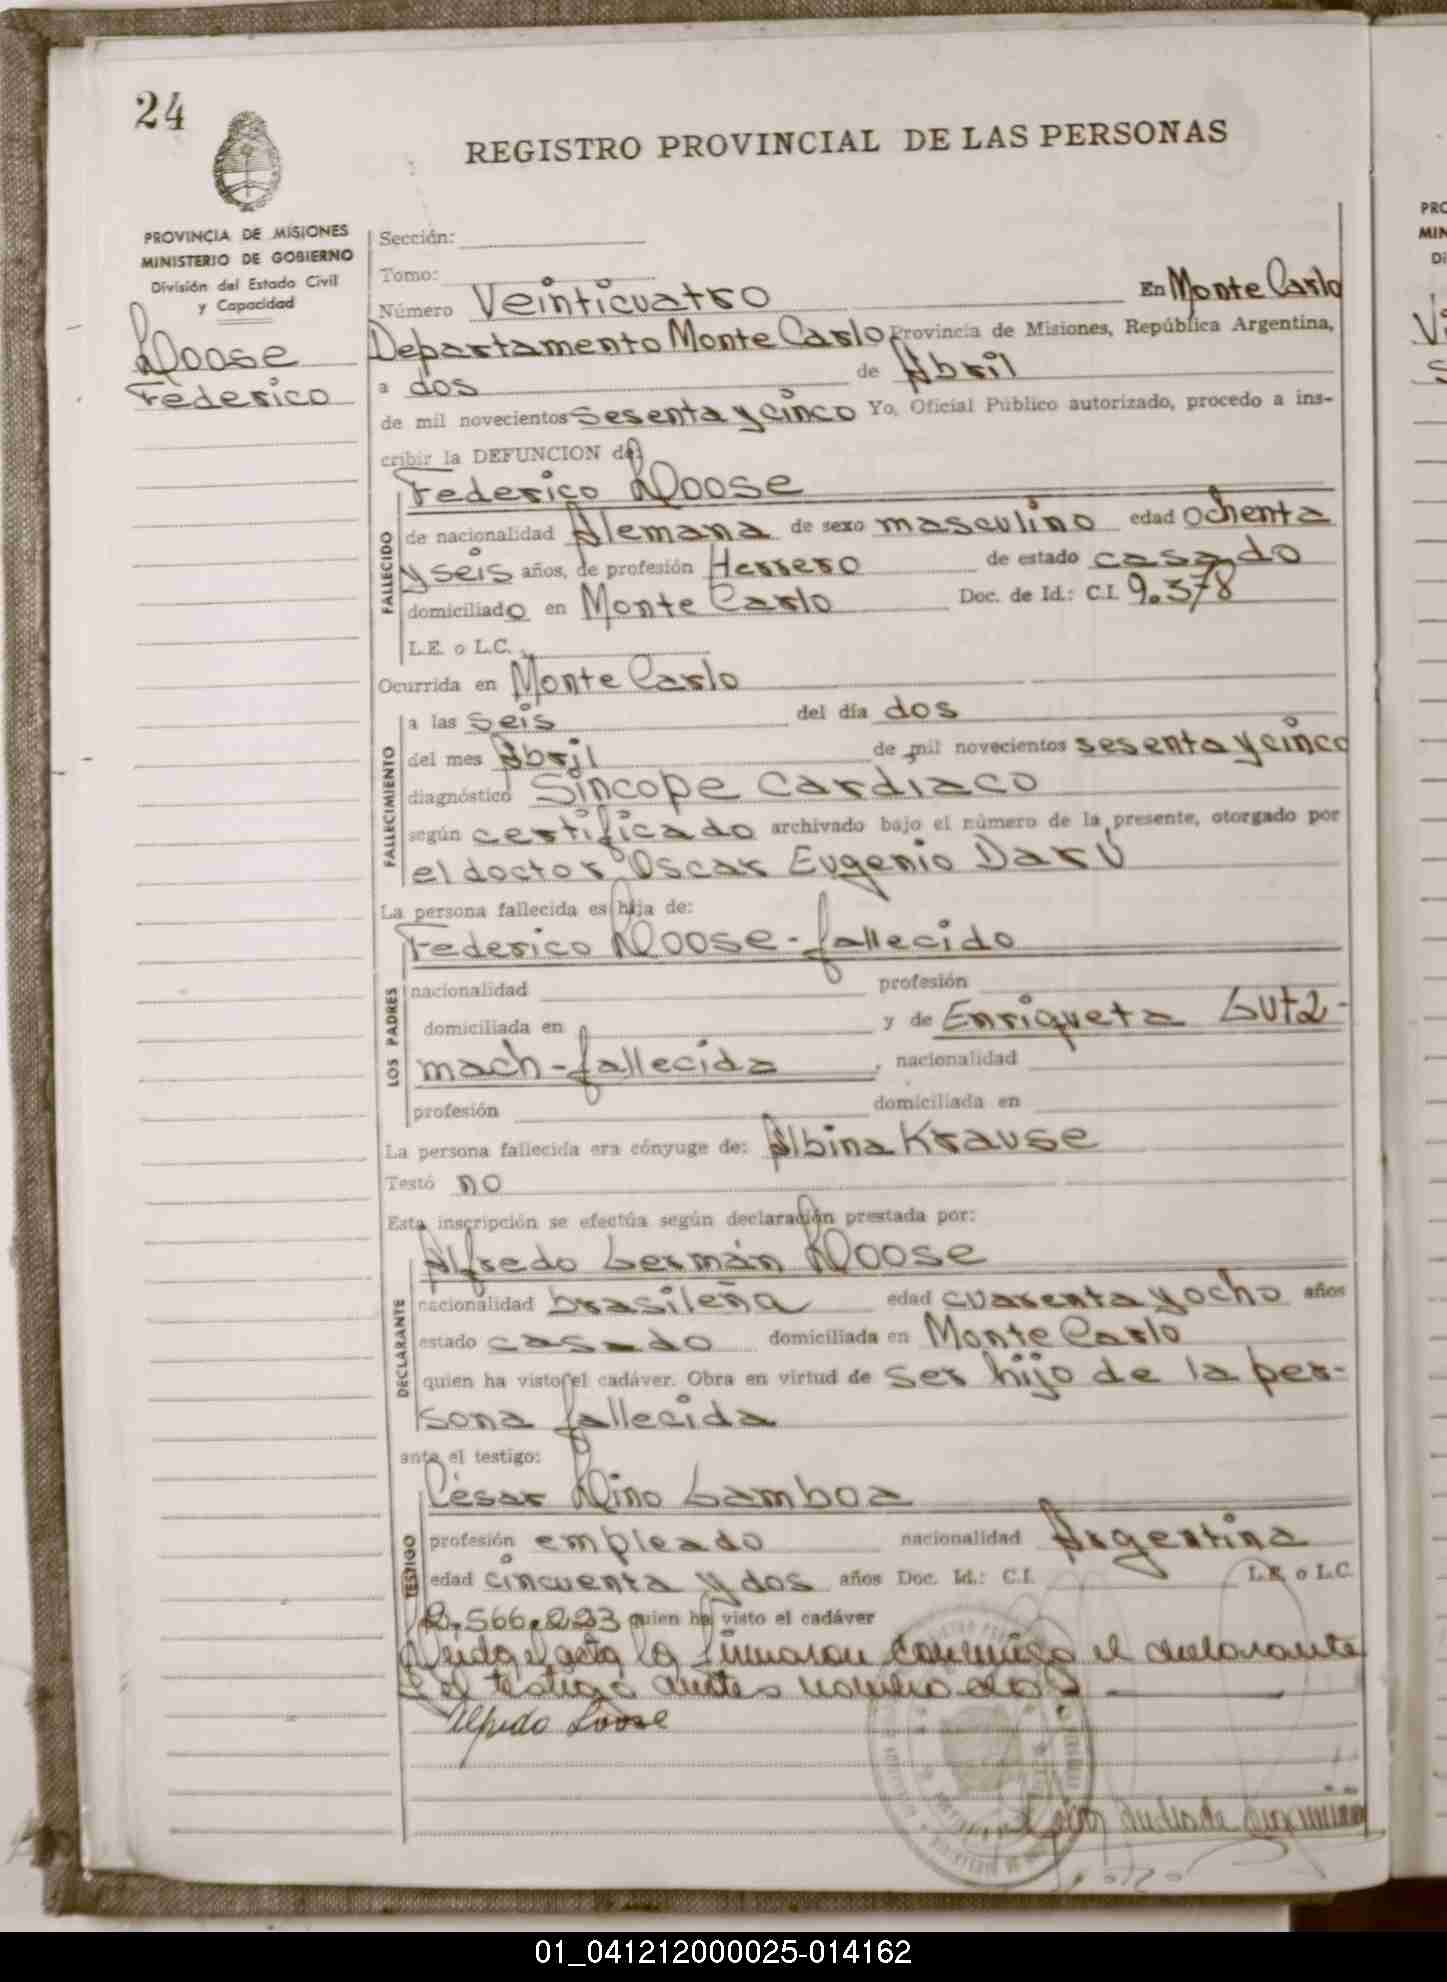 24
REGISTRO PROVINCIAL DE LAS PERSONAS
PROVINCIA DE MISIONES
MINISTERIO DE GOBIERNO
División del Estado Civil
y Capacidad
Doose
Federico
Sección:
Tomo:
Número Veinticuatro En Monte Carlo
Departamento Monte Carlo Provincia de Misiones, República Argentina,
a dos de Abril
de mil novecientos sesenta y cinco Yo, Oficial Público autorizado, procedo a ins-
cribir la DEFUNCION de:
Federico Doose
FALLECIDO
de nacionalidad Alemana de sexo masculino edad ochenta
y seis años, de profesión Herrero de estado casado
domiciliado en Monte Carlo Doc. de Id.: C.I. 9.378
L.E. o L.C.
Ocurrida en Monte Carlo
FALLECIMIENTO
a las seis del día dos
del mes Abril de mil novecientos sesenta y cinco
diagnóstico Síncope Cardiaco
según certificado archivado bajo el número de la presente, otorgado por
el doctor Oscar Eugenio Darú
La persona fallecida es hija de:
Federico Doose - fallecido
LOS PADRES
nacionalidad profesión
domiciliada en y de Enriqueta Gutz-
mach - fallecida, nacionalidad
profesión domiciliada en
La persona fallecida era cónyuge de: Albina Krause
Testó no
Esta inscripción se efectúa según declaración prestada por:
Alfredo Germán Doose
DECLARANTE
nacionalidad brasileña edad cuarenta y ocho años
estado casado domiciliada en Monte Carlo
quien ha visto el cadáver. Obra en virtud de ser hijo de la per-
sona fallecida
ante el testigo:
César Dino Gamboa
TESTIGO
profesión empleado nacionalidad Argentina
edad cincuenta y dos años Doc. Id.: C.I. L.E. o L.C.
2.566.223 quien ha visto el cadáver
Leida el acta la firmaron conmigo el declarante
y el testigo antes nombrados
Alfredo Doose
PRO
MIN
Di
01_041212000025-014162